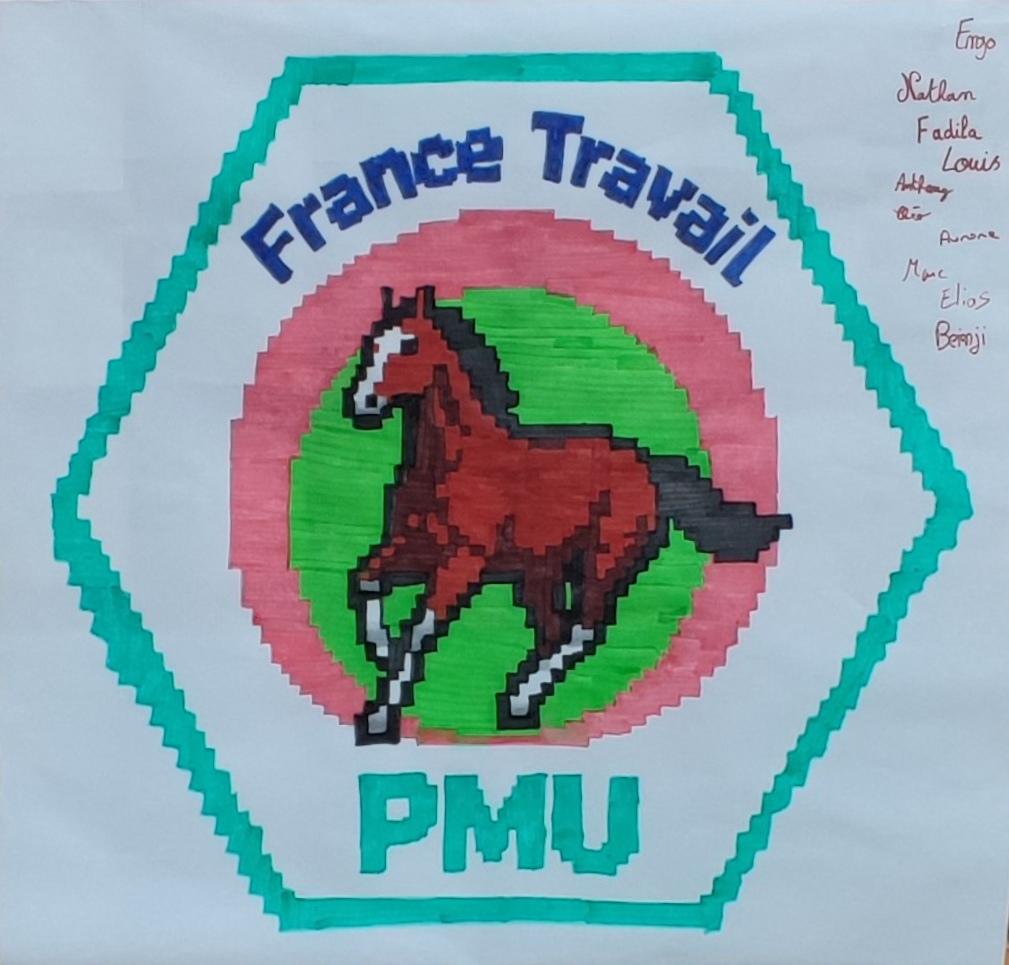 France Travail
PMU
Enzo
Nathan
Fadila
Louis
Anthony
Aurore
Marc
Elias